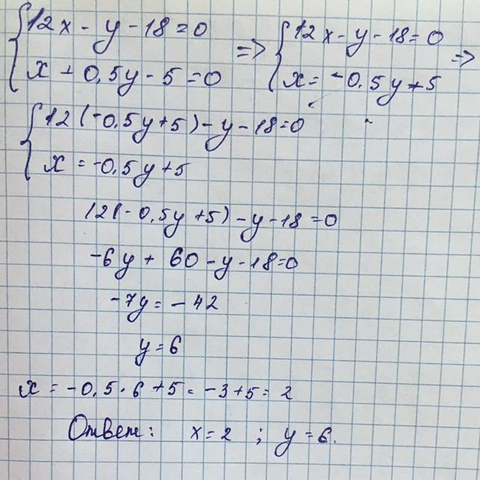 {12x - y - 18 = 0 => {12x - y - 18 = 0 =>
{x + 0,5y - 5 = 0 {x = -0,5y + 5
{12(-0,5y + 5) - y - 18 = 0
{x = -0,5y + 5
12(-0,5y + 5) - y - 18 = 0
-6y + 60 - y - 18 = 0
-7y = -42
y = 6
x = -0,5 · 6 + 5 = -3 + 5 = 2
Ответ: x = 2 ; y = 6.